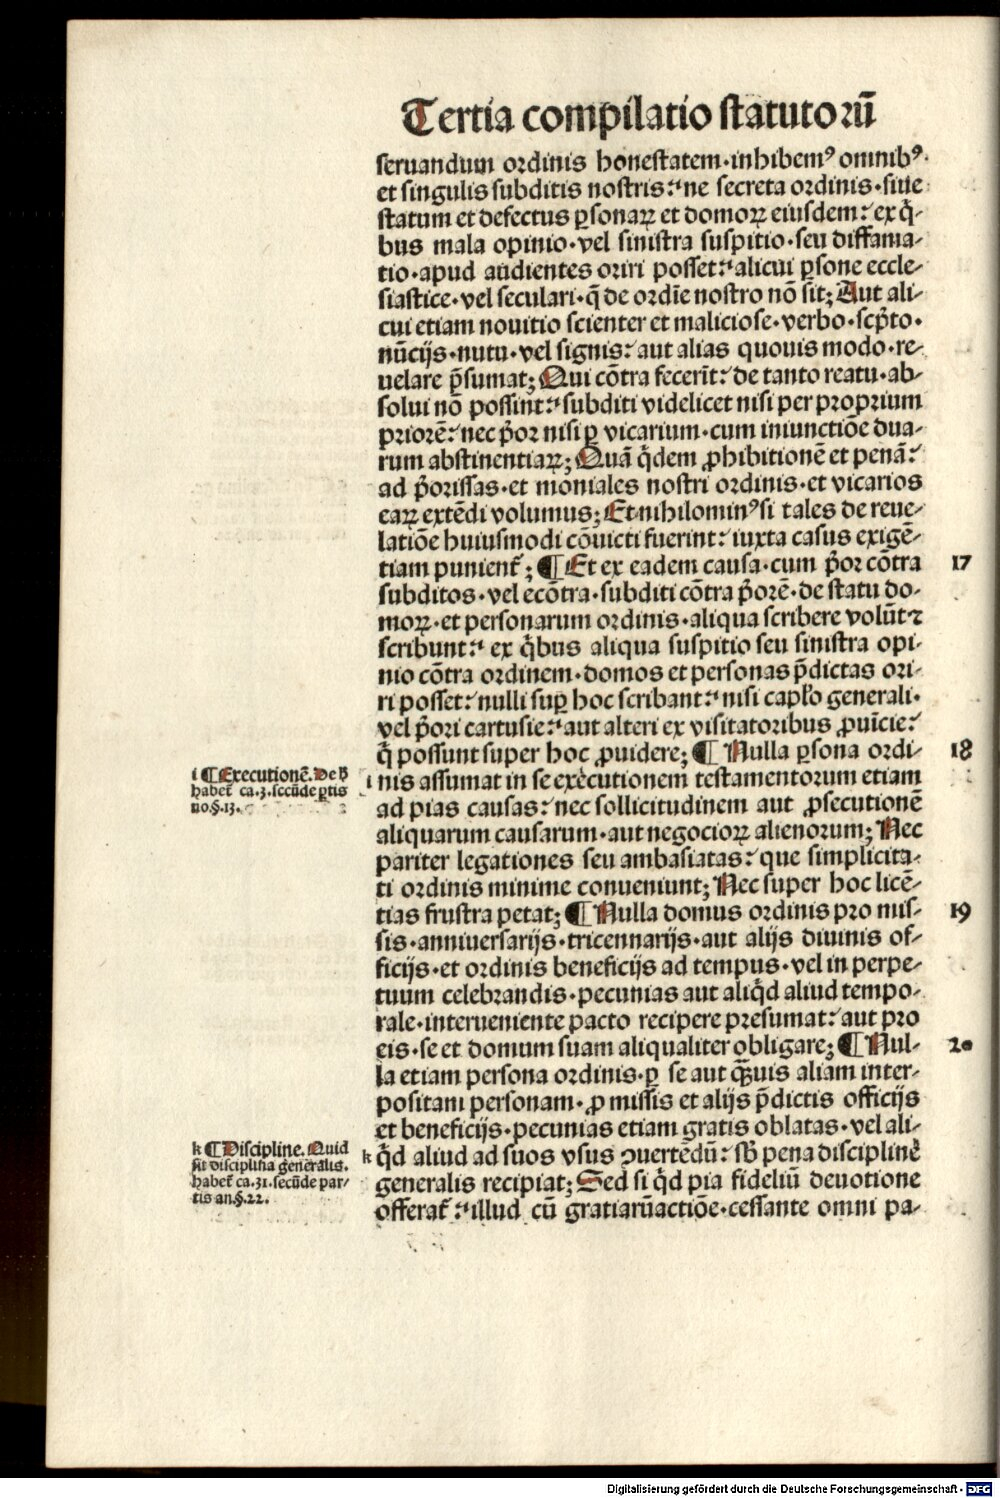 Tertia compilatio statutorū
seruandum ordinis honestatem·inhibemꝰ omnibꝰ·
et singulis subditis nostris:ne secreta ordinis·siue
statum et defectus ꝑsonaꝝ et domoꝝ eiusdem:ex q̄-
bus mala opinio·vel sinistra suspitio·seu diffama-
tio·apud audientes oriri posset:alicui ꝑsone eccle-
siastice·vel seculari·q̄ de ordīe nostro nō sit;Aut ali-
cui etiam nouitio scienter et maliciose·verbo·scp̄to·
nūcijs·nutu·vel signis:aut alias quouis modo·re-
uelare p̄sumat;Qui cōtra fecerīt:de tanto reatu·ab-
solui nō possint:subditi videlicet nisi per proprium
priorē:nec p̄or nisi ꝑ vicarium·cum iniunctiōe dua-
rum abstinentiaꝝ;Quā q̄dem ꝓhibitionē et penā:
ad p̄orissas·et moniales nostri ordinis·et vicarios
eaꝝ extēdi volumus;Et nihilominꝰ si tales de reue-
latiōe huiusmodi cōuicti fuerint:iuxta casus exigē-
tiam punient᷑;¶Et ex eadem causa·cum p̄or cōtra 17
subditos·vel ecōtra·subditi cōtra p̄orē·de statu do-
moꝝ·et personarum ordinis·aliqua scribere volūt⁊
scribunt:ex q̄bus aliqua suspitio seu sinistra opi-
nio cōtra ordinem·domos et personas p̄dictas ori-
ri posset:nulli suꝑ hoc scribant:nisi capl̄o generali·
vel p̄ori cartusie:aut alteri ex visitatoribus ꝓuīcie:
q̄ possunt super hoc ꝓuidere;¶Nulla ꝑsona ordi- 18
i ¶Executionē. De ħ
habet᷑ ca.3.secūde ꝑtis
no.§.13.
i nis assumat in se executionem testamentorum etiam
ad pias causas:nec sollicitudinem aut ꝓsecutionē
aliquarum causarum·aut negocioꝝ alienorum;Nec
pariter legationes seu ambasiatas:que simplicita-
ti ordinis minime conueniunt;Nec super hoc licē-
tias frustra petat;¶Nulla domus ordinis pro mis- 19
sis·anniuersarijs·tricennarijs·aut alijs diuinis of-
ficijs·et ordinis beneficijs ad tempus·vel in perpe-
tuum celebrandis·pecunias aut aliq̄d aliud tempo-
rale·interueniente pacto recipere presumat:aut pro
eis·se et domum suam aliqualiter obligare;¶Nul- 20
la etiam persona ordinis·ꝑ se aut q̄uis aliam inter-
positam personam·ꝓ missis et alijs p̄dictis officijs
et beneficijs·pecunias etiam gratis oblatas·vel ali-
k ¶Discipline. Quid
sit disciplina generalis.
habet᷑ ca.31.secūde par-
tis an.§.22.
k q̄d aliud ad suos vsus ꝯuertēdū:sb̄ pena discipline
generalis recipiat;Sed si q̄d pia fideliū deuotione
offerat᷑:illud cū gratiarūactiōe·cessante omni pa-
Digitalisierung gefördert durch die Deutsche Forschungsgemeinschaft - DFG